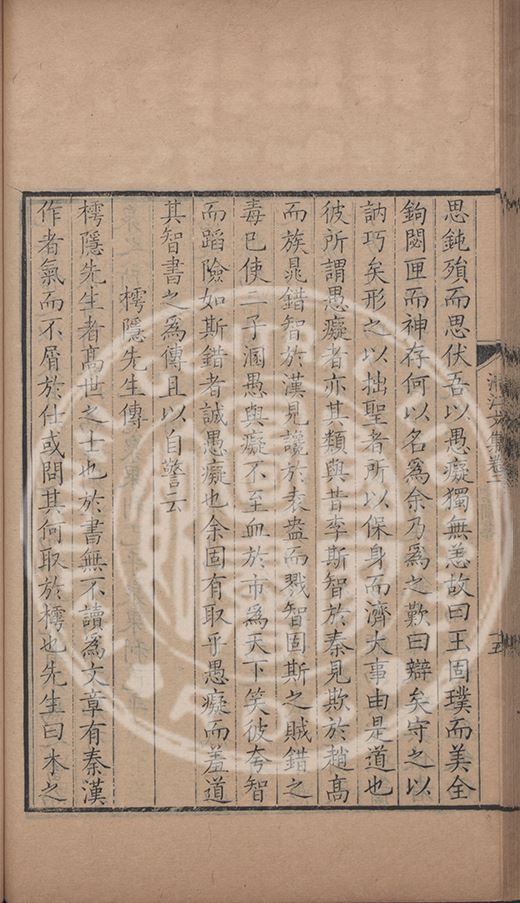 思鈍殞而思伏吾以愚癡獨無恙故曰玉固璞而美全
鉤閟匣而神存何以名為余乃為之歎曰辯矣守之以
訥巧矣形之以拙聖者所以保身而濟大事由是道也
彼所謂愚癡者亦其類與昔李斯智於秦見欺於趙高
而族鼂錯智於漢見讒於袁盎而戮智固斯之賊錯之
毒已使二子涸愚與癡不至血於市為天下笑彼夸智
而蹈險如斯錯者誠愚癡也余固有取乎愚癡而羞道
其智書之為傳且以自警云
樗隱先生傳
樗隱先生者高世之士也於書無不讀為文章有秦漢
作者氣而不屑於仕或問其何取於樗也先生曰木之
文集卷二
五